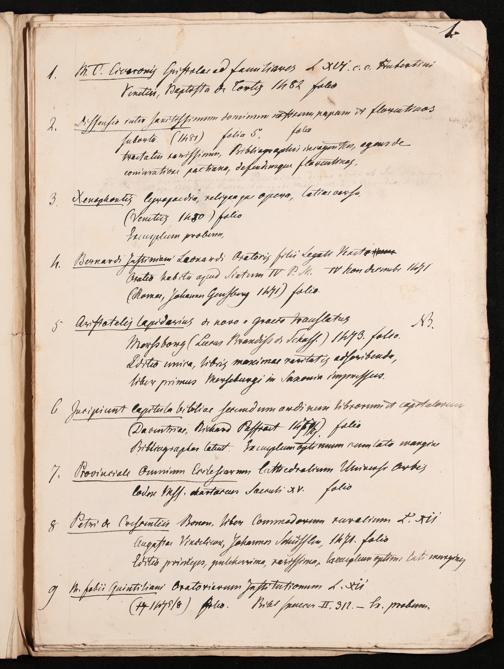 1.
1. M. T. Ciceronis Epistolae ad familiares L. XVI. c. c. Hubertini
Venetiis, Baptista de Tortis 1482 folio
2. Dissensio inter sanctissimum dominum nostrum papam et florentinos
suborta (1481) folio 5. folio
tractatus rarissimus, Bibliographis incognitus, agens de
coniuratione pactiana, defendensque florentinos.
3. Xenophontis Cyropaedia, reliqua opera, latine versa,
(Venetiis 1480) folio
Exemplum probum.
4. Bernardi Justiniani Leonardi Oratoris filii Legati Veneto
Oratio habita apud Sixtum IV P. M. IV Non decembr 1471
(Romae, Johannes Gensberg 1471) folio
5 Aristotelis lapidarius de novo e Graeco translatus N3.
Mersborg (Lucas Brandiss de Schass.) 1473. folio.
Editio unica, libris maximae raritatis adscribenda,
liber primus Mersburgi in Saxonia impressus.
6 Incipiunt capitula bibliae secundum ordinem librorum et capitulorum
(Daventriae, Richard Paffraet) folio
Bibliographos latuit. Exemplum optimum cum lato margine
7. Provinciale Omnium Ecclesiarum Cathedralium Universi Orbis
Codex Mss. chartaceus Saeculi XV. folio
8 Petri de Crescentiis Bonon. liber Commodorum ruralium L. XII
Augustae Vindelicor, Johannes Schüssler, 1471. folio
Editio princeps, pulcherrima, rarissima, exemplum optimum lati marginis
9 M. fabii Quintiliani Oratoriarum Institutionum L. XII
folio. II. 312. — Ex. probum.